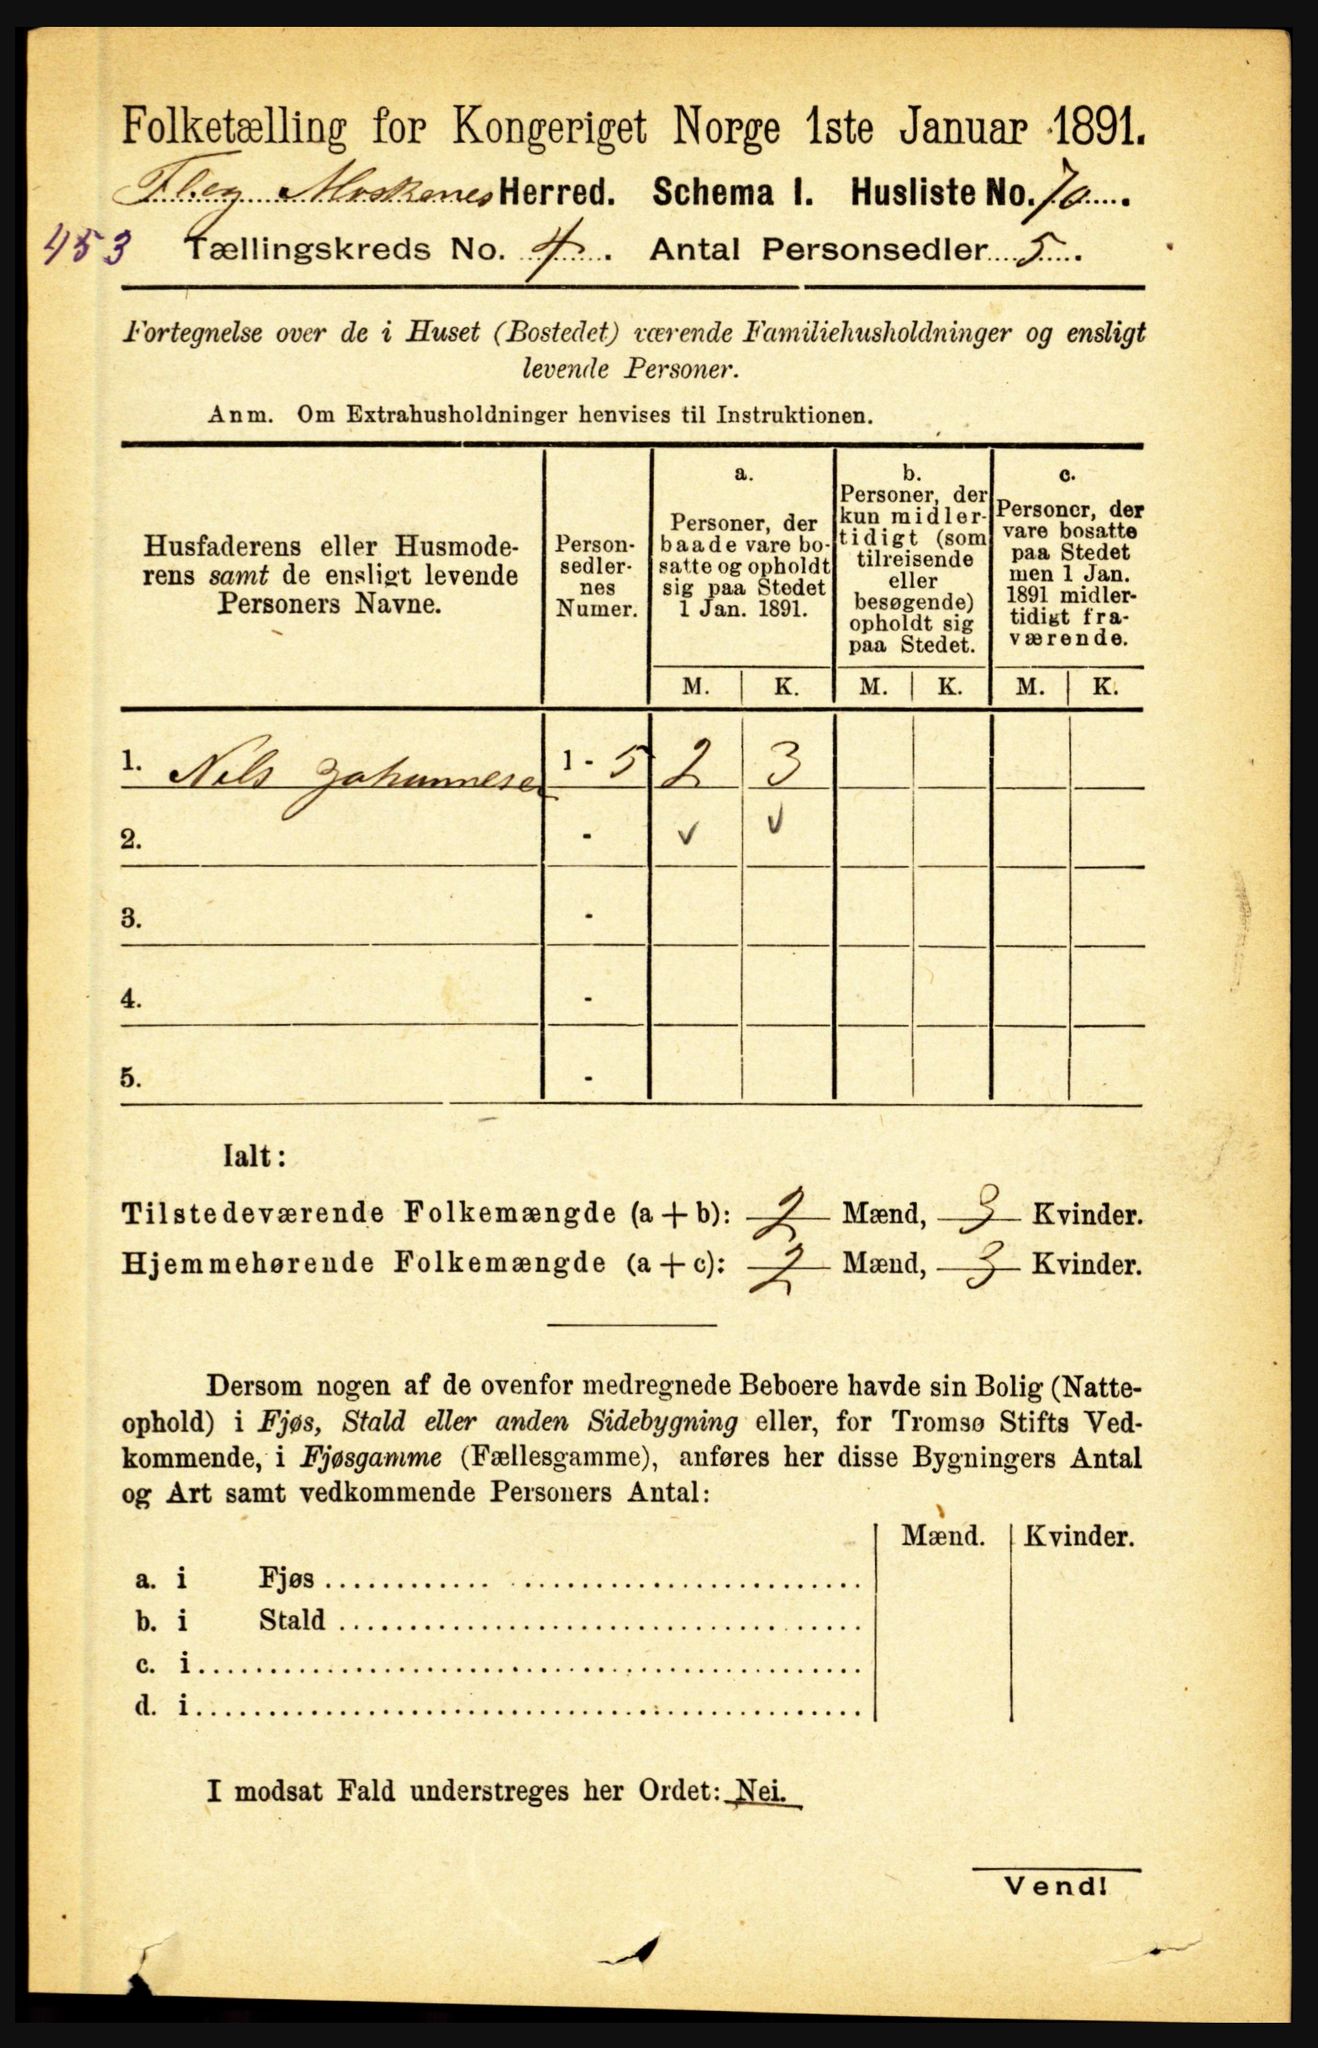 Folketælling for Kongeriget Norge 1ste Januar 1891.
Fl. og Moskenes Herred. Schema I. Husliste No. 70
453 Tællingskreds No. 4. Antal Personsedler 5.
Fortegnelse over de i Huset (Bostedet) værende Familiehusholdninger og ensligt
levende Personer.
Anm. Om Extrahusholdninger henvises til Instruktionen.
Husfaderens eller Husmode-
rens samt de ensligt levende
Personers Navne.
Person-
sedler-
nes
Numer.
a.
Personer, der
baade vare bo-
satte og opholdt
sig paa Stedet
1 Jan. 1891.
b.
Personer, der
kun midler-
tidigt (som
tilreisende
eller
besøgende)
opholdt sig
paa Stedet.
c.
Personer, der
vare bosatte
paa Stedet
men 1 Jan.
1891 midler-
tidigt fra-
værende.
M. K. M. K. M. K.
1. Nils Johannesen 1 - 5 2 3
2. - ✓ ✓
3. -
4. -
5. -
Ialt:
Tilstedeværende Folkemængde (a + b): 2 Mænd, 3 Kvinder.
Hjemmehørende Folkemængde (a + c): 2 Mænd, 3 Kvinder.
Dersom nogen af de ovenfor medregnede Beboere havde sin Bolig (Natte-
ophold) i Fjøs, Stald eller anden Sidebygning eller, for Tromsø Stifts Ved-
kommende, i Fjøsgamme (Fællesgamme), anføres her disse Bygningers Antal
og Art samt vedkommende Personers Antal:
Mænd. Kvinder.
a. i Fjøs
b. i Stald
c. i
d. i
I modsat Fald understreges her Ordet: Nei.
Vend!